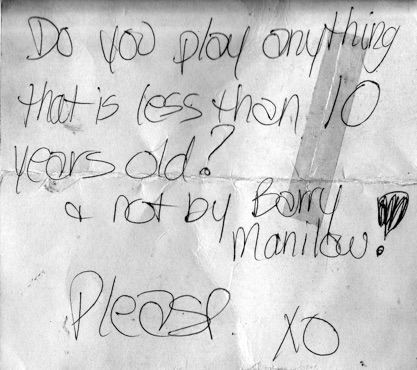 Do you play anything
that is less than 10
years old?
& not by Barry
Manilow!
Please XO